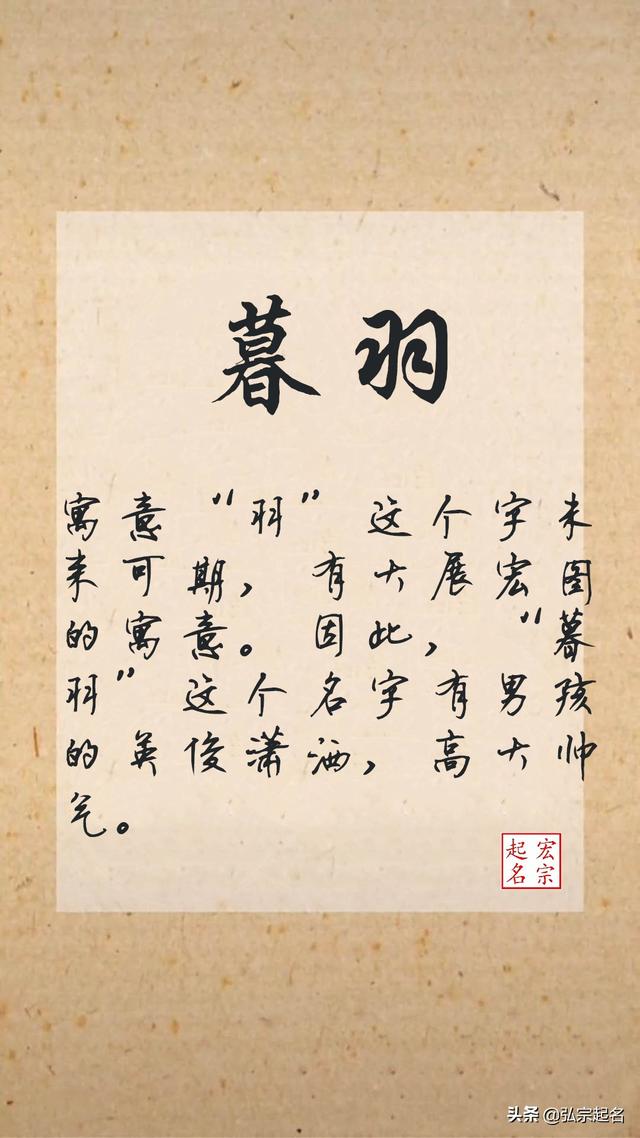 暮羽
寓意“羽”这个字未
来可期，有大展宏图
的寓意。因此，“暮
羽”这个名字有男孩
的英俊潇洒，高大帅
气。
宏宗
起名
头条 @弘宗起名